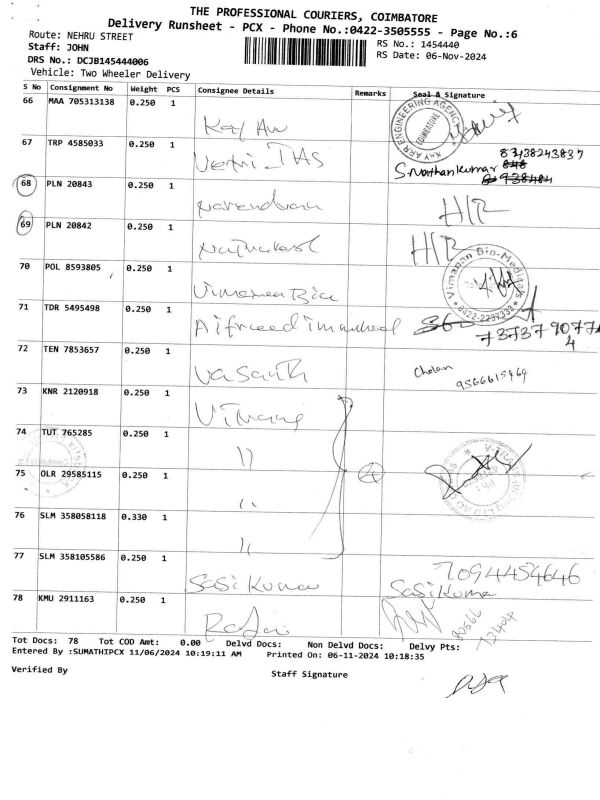 THE PROFESSIONAL COURIERS, COIMBATORE
Delivery Runsheet - PCX - Phone No.:0422-3505555 - Page No.:6
Route: NEHRU STREET
RS No.: 1454440
Staff: JOHN
RS Date: 06-Nov-2024
DRS No.: DCJB145444006
Vehicle: Two Wheeler Delivery
S No Consignment No Weight PCS Consignee Details Remarks Seal & Signature
66 MAA 705313138 0.250 1 Kay Arr
KAY ARR ENGINEERING AGENCY COIMBATORE
67 TRP 4585033 0.250 1 Vetri IAS S.Nathankumar 8438243837
68 PLN 20843 0.250 1 Narendran H/R
69 PLN 20842 0.250 1 H/R
70 POL 8593805 0.250 1 Vimanan Bio
Vimanan Bio-Medicals 0422-2237333
71 TDR 5495498 0.250 1 737379077
4
72 TEN 7853657 0.250 1 Vasanth Cholan
9566615469
73 KNR 2120918 0.250 1
74 TUT 765285 0.250 1 "
75 OLR 29585115 0.250 1 " 4
76 SLM 358058118 0.330 1 "
77 SLM 358105586 0.250 1 Sasikumar 7094454646
Sasikumar
78 KMU 2911163 0.250 1 Rajai
Tot Docs: 78 Tot COD Amt: 0.00 Delvd Docs: Non Delvd Docs: Delvy Pts:
Entered By :SUMATHIPCX 11/06/2024 10:19:11 AM Printed On: 06-11-2024 10:18:35
Verified By
Staff Signature